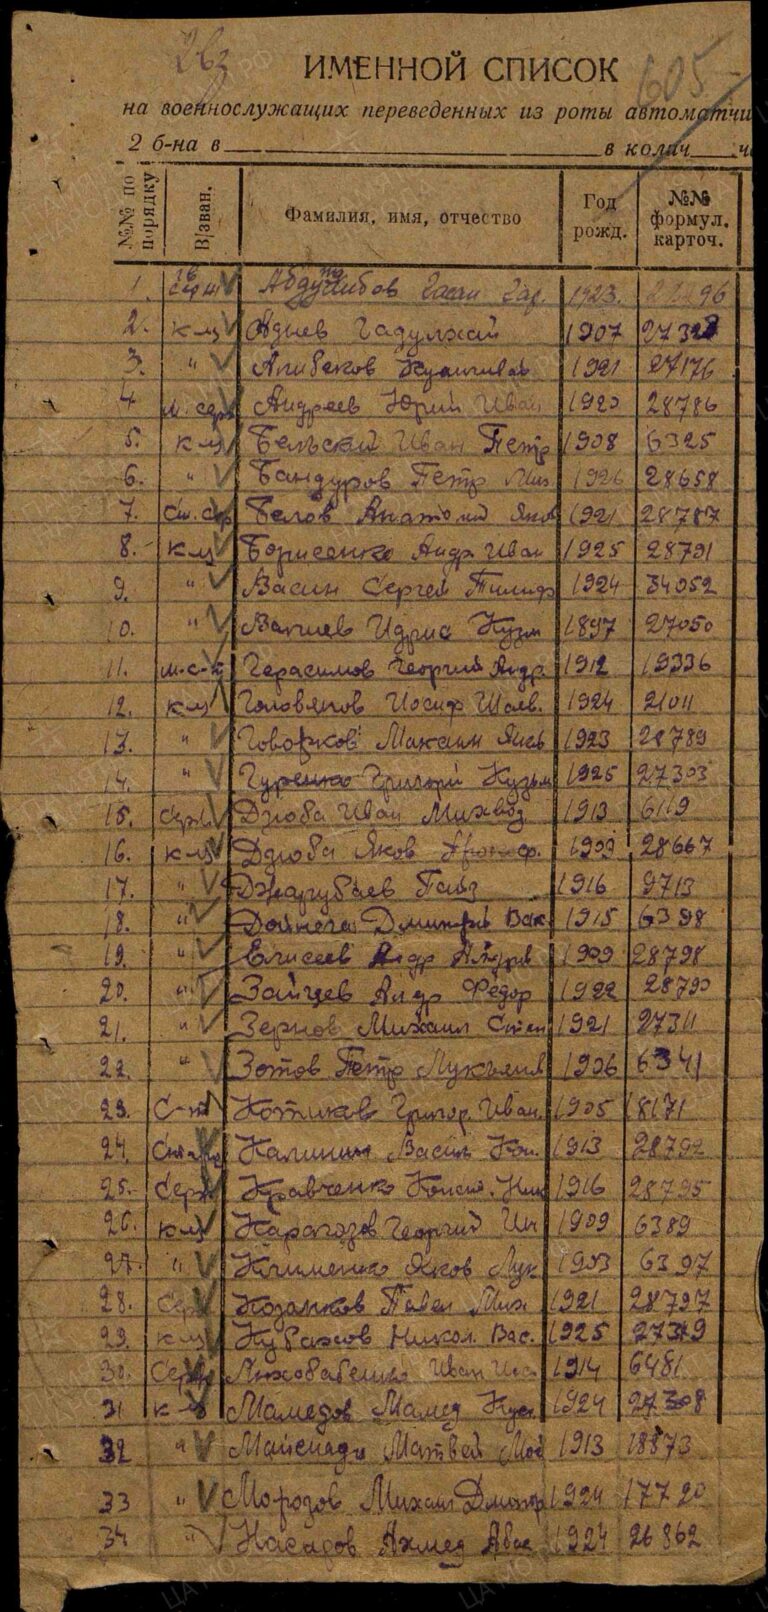 263
605
ИМЕННОЙ СПИСОК
на военнослужащих переведенных из роты автоматчи
2 б-на в в колич. ч
№№ по порядку В/зван. Фамилия, имя, отчество Год рожд. №№ формул. карточ.
1. гв серж 1923. 96
2. к-ц Адиев Гадулхай 1907
3. " Агибеков 1921 27176
4 м. сер Андреев Юрий Иван 1920 28786
5. к-ц Бельский Иван Петр 1908 6325
6. " Бандуров Петр Мих 1926 28658
7. Ст. сер Белов Анатолий Яков 1921 28787
8. к-ц Борисенко Андр Иван 1925 28791
9. " Васин Сергей 1924 34052
10. " Идрис Кузм 1897 27050
11. м.с-т Герасимов Георгий Андр. 1912 19336
12. к-ц Головянов Иосиф 1924 21011
13. " Говорков Максим 1923 28789
14. " Гуренко Григорий Кузьм 1925 27303
15. Серж Дзюба Иван 1913 6119
16. к-ц Дзюба Яков 1909 28667
17. " 1916 9713
18. " Дойнега Дмитрий Вас. 1915 6398
19. " Елисеев Андр 1909 28798
20. " Зайцев Алдр Федор 1922 28790
21. " Зернов Михаил Степ 1921 27311
22. " Зотов Петр Лукьянов 1906 6341
23. С-нт Котиков Григор Иван. 1905 18171
24. Калинин Васил Кон. 1913 28792
25. Серж Кравченко Конст. Ник 1916 28795
26. к-ц Карагозов Георгий Ин 1909 6389
27. " Клименко Яков Лук 1903 6397
28. Сер Козанков Павел Мих 1921 28797
29. к-ц Никол. Вас. 1925
30. Сер Лихобабенко Иван 1914 6481
31 к-ц Мамедов Мамед 1924 27308
32 " Матвей Мой 1913 18873
33 " Морозов Михаил Дмитр 1924 17720
34 " Насадов Ахмед Абас 1924 26862